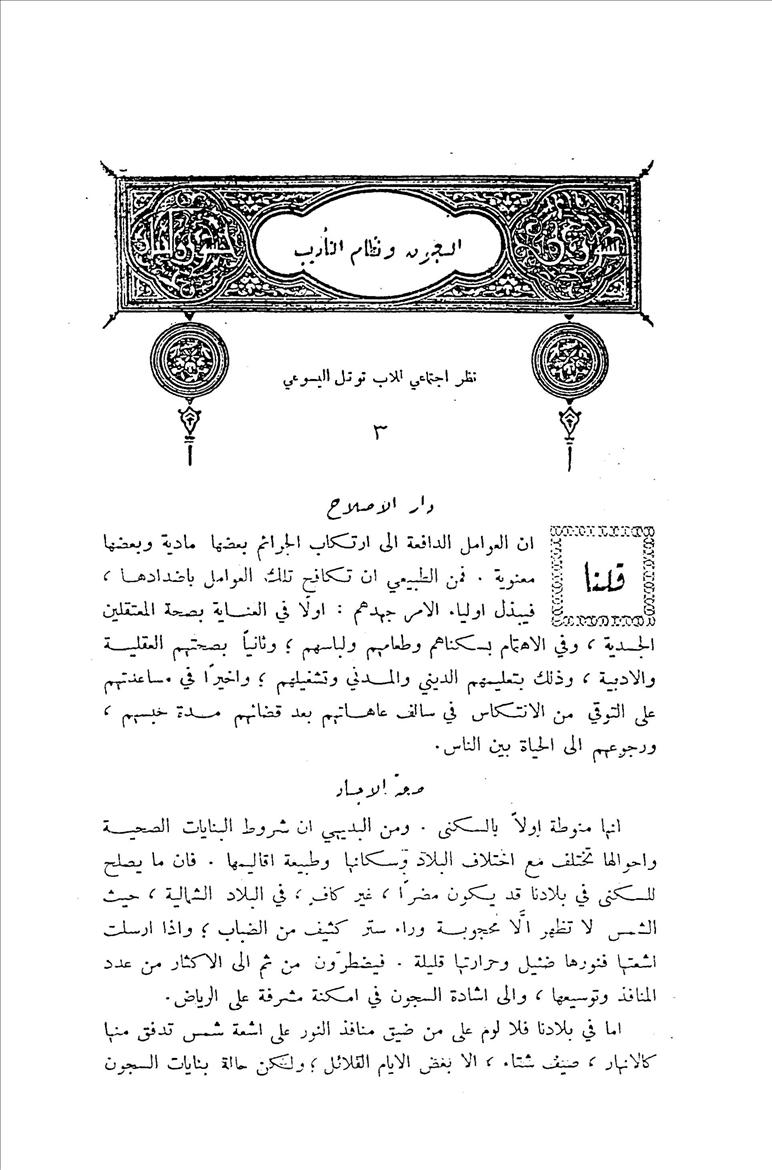 السجون ونظام التأديب
نظر اجتماعي للاب توتل اليسوعي
٣
دار الاصلاح
قلنا
ان العوامل الدافعة الى ارتكاب الجرائم بعضها مادية وبعضها
معنوية . فمن الطبيعي ان تكافح تلك العوامل باضدادها ،
فيبذل اولياء الامر جهدهم : اولًا في العناية بصحة المعتقلين
الجسدية ، وفي الاهتمام بسكناهم وطعامهم ولباسهم ؛ وثانياً بصحتهم العقلية
والادبية ، وذلك بتعليمهم الديني والمدني وتشغيلهم ؛ واخيرًا في مساعدتهم
على التوقي من الانتكاس في سالف عاهاتهم بعد قضائهم مدة حبسهم ،
ورجوعهم الى الحياة بين الناس .
صحة الاجساد
انها منوطة اولاً بالسكنى . ومن البديهي ان شروط البنايات الصحية
واحوالها تختلف مع اختلاف البلاد وسكانها وطبيعة اقاليمها . فان ما يصلح
للسكنى في بلادنا قد يكون مضرًا ، غير كاف ، في البلاد الشمالية ، حيث
الشمس لا تظهر الَّا محجوبة وراء ستر كثيف من الضباب ؛ واذا ارسلت
اشعتها فنورها ضئيل وحرارتها قليلة . فيضطرّون من ثم الى الاكثار من عدد
المنافذ وتوسيعها ، والى اشادة السجون في امكنة مشرفة على الرياض .
اما في بلادنا فلا لوم على من ضيق منافذ النور على اشعة شمس تدفق منها
كالانهار ، صيف شتاء ، الا بعض الايام القلائل ؛ ولكن حالة بنايات السجون